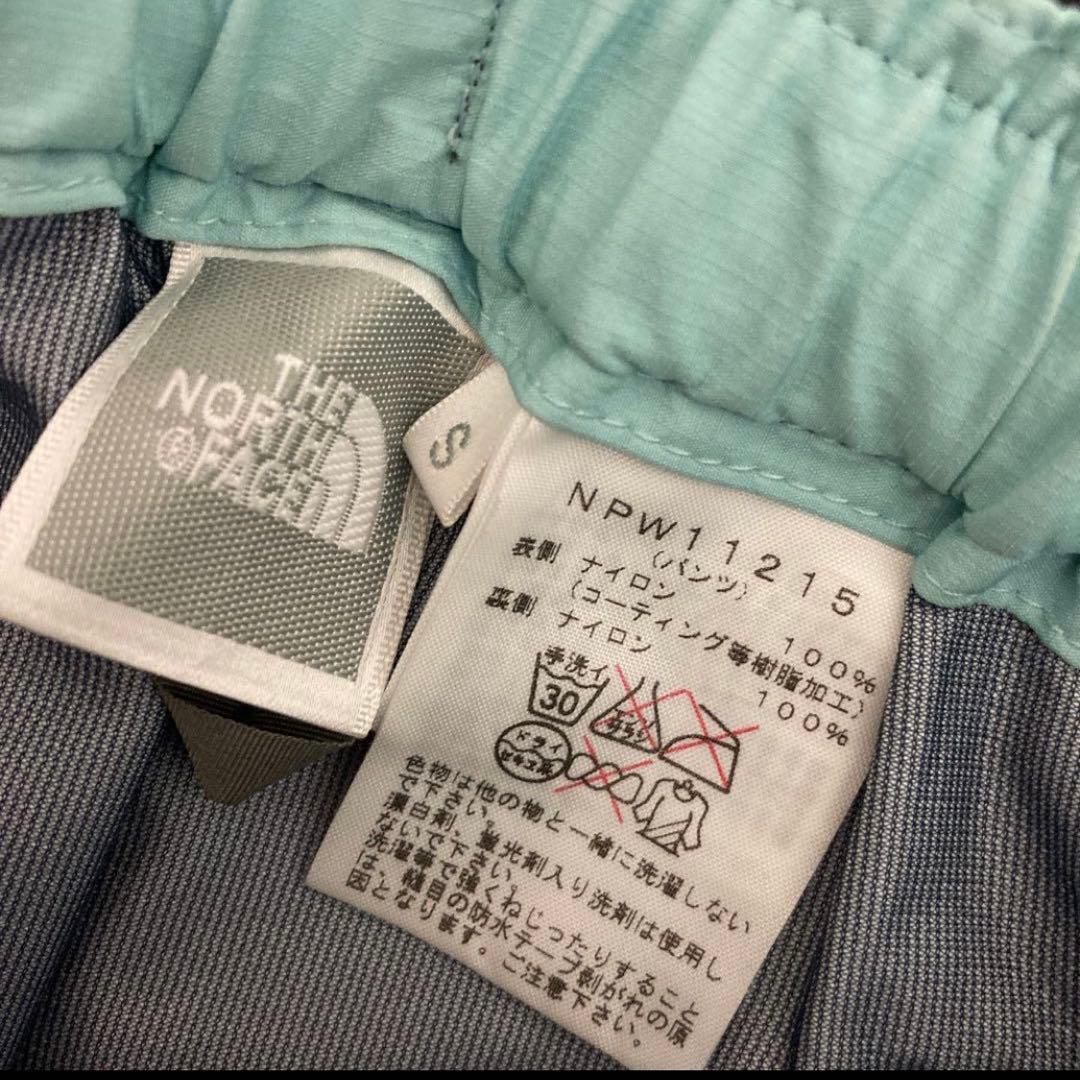 THE
NORTH
FACE
S
NPW11215
(パンツ)
表側 ナイロン 100%
(コーティング等樹脂加工)
裏側 ナイロン 100%
手洗イ
30
エンソ
サラシ
ドライ
セキユ系
色物は他の物と一緒に洗濯しない
で下さい。
漂白剤、蛍光剤入り洗剤は使用し
ないで下さい。
洗濯等で強くねじったりすること
は、縫目の防水テープ剥がれの原
因となります。ご注意下さい。